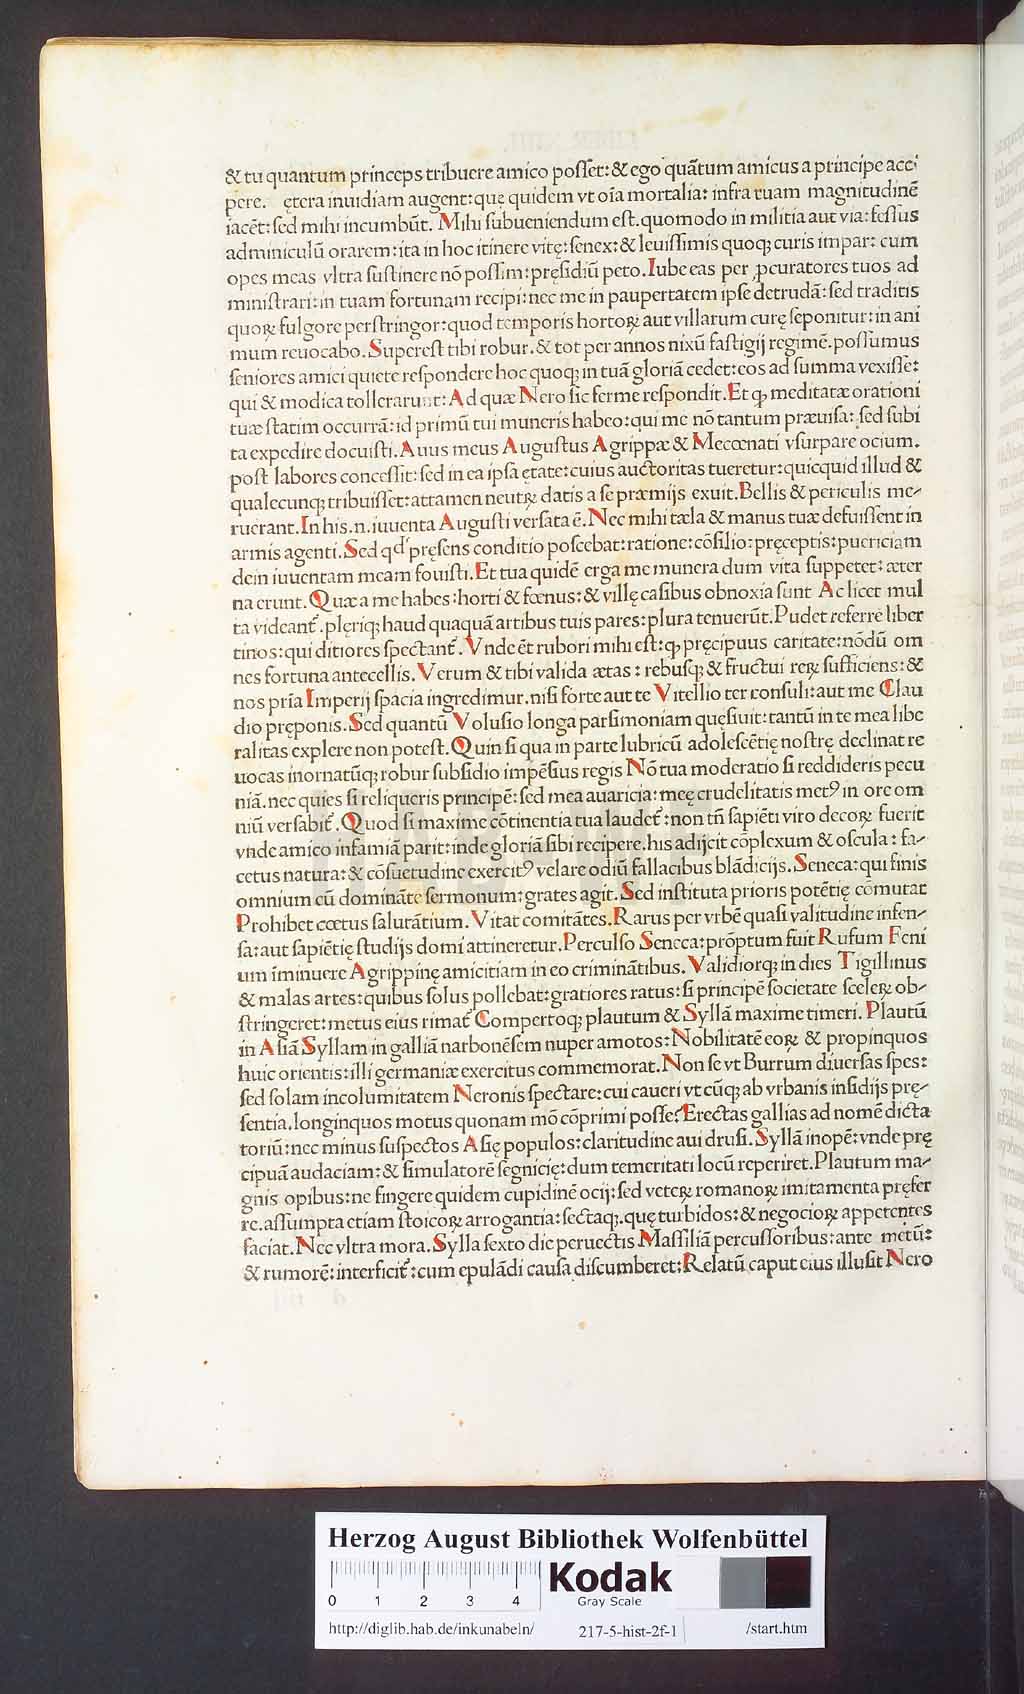 & tu quantum princeps tribuere amico posset: & ego quãtum amicus a principe acci
pere. etera inuidiam augent: quę quidem vt oĩa mortalia: infra tuam magnitudinẽ
iacẽt: sed mihi incumbũt. Mihi subueniendum est. quomodo in militia aut via: fessus
adminiculũ orarem: ita in hoc itinere vitę: senex: & leuissimis quoqꝫ curis impar: cum
opes meas vltra sustinere nõ possim: pręsidiũ peto. Iube eas per ꝓcuratores tuos ad
ministrari: in tuam fortunam recipi: nec me in paupertatem ipse detrudã: sed traditis
quoꝝ fulgore perstringor: quod temporis hortoꝝ aut villarum curę seponitur: in ani
mum reuocabo. Superest tibi robur. & tot per annos nixũ fastigij regimẽ. possumus
seniores amici quiete respondere hoc quoqꝫ in tuã gloriã cedet: eos ad summa vexisse:
qui & modica tollerarunt: Ad quæ Nero sic ferme respondit. Et ꝙ meditatæ orationi
tuæ statim occurrã: id primũ tui muneris habeo: qui me nõ tantum præuisa: sed subi
ta expedire docuisti. Auus meus Augustus Agrippæ & Mecœnati vsurpare ocium.
post labores concessit: sed in ea ipsa ętate: cuius auctoritas tueretur: quicquid illud &
qualecunqꝫ tribuisset: attamen neutꝝ datis a se præmijs exuit. Bellis & periculis me-
ruerant. In his .n. iuuenta Augusti versata ẽ. Nec mihi tæla & manus tuæ defuissent in
armis agenti. Sed qđ pręsens conditio poscebat: ratione: cõsilio: pręceptis: puericiam
dein iuuentam meam fouisti. Et tua quidẽ erga me munera dum vita suppetet: æter
na erunt. Quæ a me habes: horti & fœnus: & villę casibus obnoxia sunt Ac licet mul
ta videant᷑. plęriqꝫ haud quaquã artibus tuis pares: plura tenuerũt. Pudet referre liber
tinos: qui ditiores spectant᷑. Vnde ẽt rubori mihi est: ꝙ pręcipuus caritate: nõdũ om
nes fortuna antecellis. Verum & tibi valida ætas: rebusqꝫ & fructui reꝝ sufficiens: &
nos prĩa Imperij spacia ingredimur. nisi forte aut te Vitellio ter consuli: aut me Clau
dio pręponis. Sed quantũ Volusio longa parsimoniam quęsiuit: tantũ in te mea libe
ralitas explere non potest. Quin si qua in parte lubricũ adolescẽtię nostrę declinat re
uocas inornatũqꝫ robur subsidio impẽsius regis Nõ tua moderatio si reddideris pecu
niã. nec quies si reliqueris principẽ: sed mea auaricia: meę crudelitatis metꝰ in ore om
niũ versabit᷑. Quod si maxime cõtinentia tua laudet᷑: non tñ sapiẽti viro decoꝝ fuerit
vnde amico infamiã parit: inde gloriã sibi recipere. his adijcit cõplexum & oscula: fa-
cetus natura: & cõsuetudine exercitꝰ velare odiũ fallacibus blãdicijs. Seneca: qui finis
omnium cũ dominãte sermonum: grates agit. Sed instituta prioris potẽtię cõmutat
Prohibet cœtus salutãtium. Vitat comitãtes. Rarus per vrbẽ quasi valitudine infen-
sa: aut sapiẽtię studijs domi attineretur. Perculso Seneca: prõptum fuit Rufum Feni
um ĩminuere Agrippinę amicitiam in eo criminãtibus. Validiorqꝫ in dies Tigillinus
& malas artes: quibus solus pollebat: gratiores ratus: si principẽ societate sceleꝝ ob-
stringeret: metus eius rimat᷑ Compertoqꝫ plautum & Syllã maxime timeri. Plautũ
in Asiã Syllam in galliã narbonẽsem nuper amotos: Nobilitatẽ eoꝝ & propinquos
huic orientis: illi germaniæ exercitus commemorat. Non se vt Burrum diuersas spes:
sed solam incolumitatem Neronis spectare: cui caueri vt cũqꝫ ab vrbanis insidijs prę-
sentia. longinquos motus quonam mõ cõprimi posse? Erectas gallias ad nomẽ dicta
toriũ: nec minus suspectos Asię populos: claritudine aui drusi. Syllã inopẽ: vnde prę
cipuã audaciam: & simulatorẽ segnicię: dum temeritati locũ reperiret. Plautum ma-
gnis opibus: ne fingere quidem cupidinẽ ocij: sed veteꝝ romanoꝝ imitamenta pręfer
re. assumpta etiam stoicoꝝ arrogantia: sectaqꝫ. quę turbidos: & negocioꝝ appetentes
faciat. Nec vltra mora. Sylla sexto die peruectis Massiliã percussoribus: ante metũ:
& rumorẽ: interficit᷑: cum epulãdi causa discumberet: Relatũ caput eius illusit Nero
Herzog August Bibliothek Wolfenbüttel
0 1 2 3 4
Kodak
Gray Scale
http://diglib.hab.de/inkunabeln/ 217-5-hist-2f-1 /start.htm